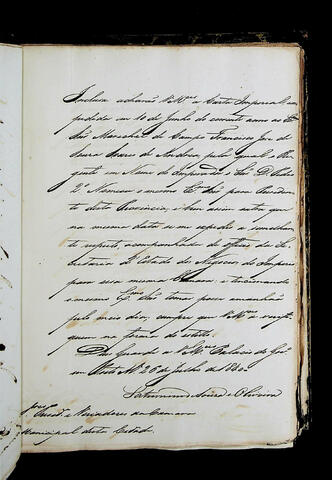 Inclusa acharão V.M.ces a Carta Imperial ex
pedida em 10 de Junho do corrente anno ao Ex.mo
Sr. Marechal de Campo Francisco Jozé de
Souza Soares de Andréa pela qual o Re
gente em Nome do Imperador o Sr. D. Pedro
2.º Nomeou o mesmo Ex.mo Sr. para Presidente
desta Provincia, e bem assim esta que
na mesma data se me expedio a semelhan
te respeito, acompanhados de officio da Se
cretaria d'Estado de Negocios do Imperio
para essa mesma Camara: e tencionando
o mesmo Ex.mo Sr. tomar posse amanhã
pelo meio dia, cumpre que V.M.ces verifi
quem na forma do estillo.
Deos Guarde a V.M.ces Palacio do Gov.º
em Porto Al.e 26 de Julho de 1840.
Saturnino Souza e Oliveira
Snr.es Presid.e e Vereadores da Camara
Municipal desta Cidade.